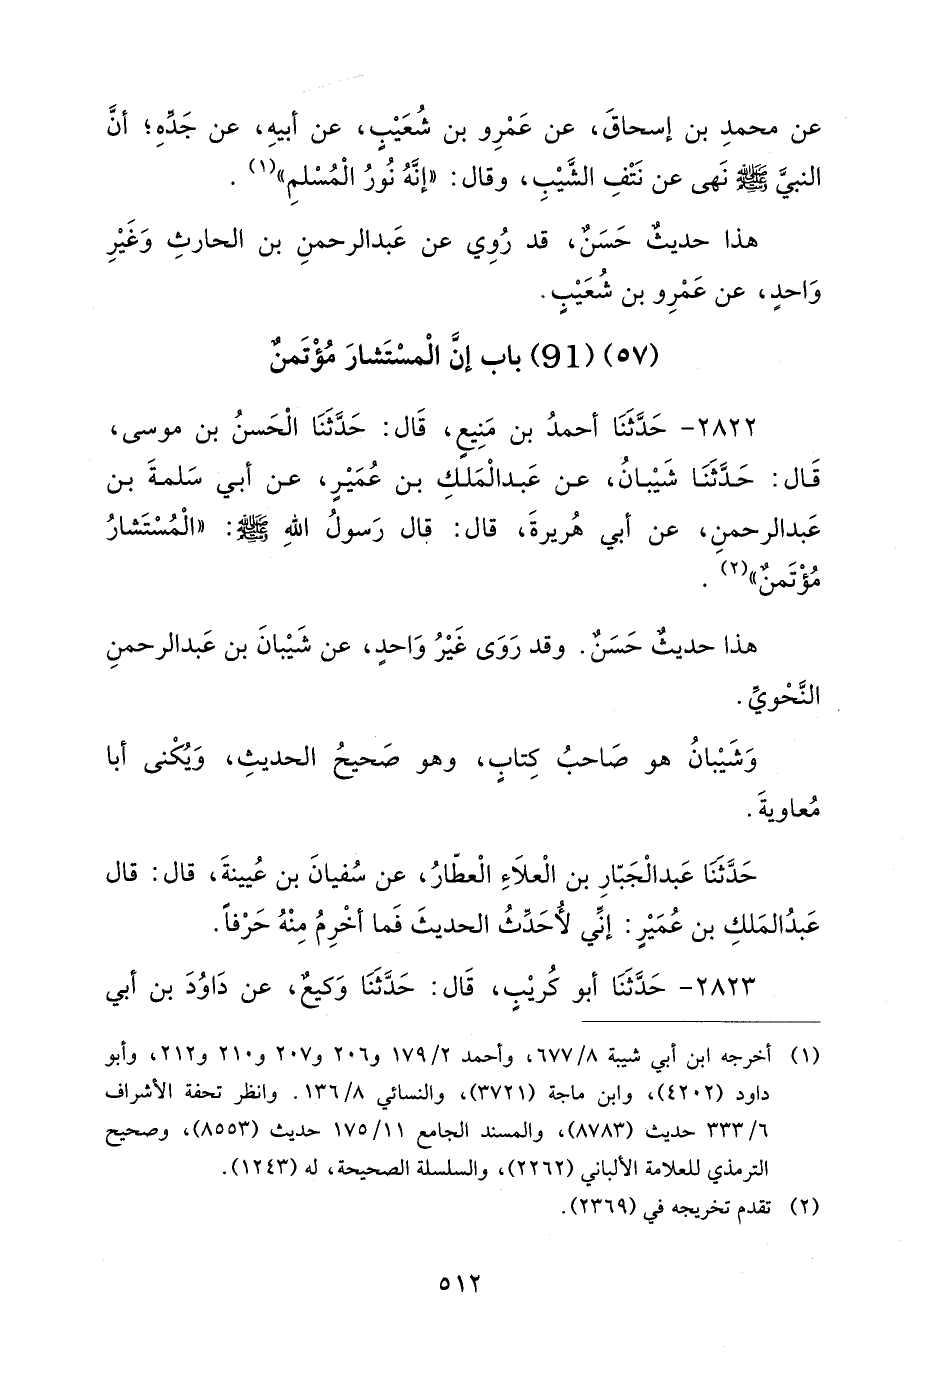 عن محمدِ بن إسحاقَ، عن عَمْرِو بن شُعَيْبٍ، عن أبيهِ، عن جَدِّهِ؛ أنَّ
النبيَّ ﷺ نَهى عن نَتْفِ الشَّيْبِ، وقال: «إنَّهُ نُورُ الْمُسْلمِ»(١) .
هذا حديثٌ حَسَنٌ، قد رُوِي عن عَبدالرحمنِ بن الحارثِ وَغَيْرِ
وَاحدٍ، عن عَمْرِو بن شُعَيْبٍ.
(٥٧) (91) باب إنَّ الْمسْتَشارَ مُؤْتَمنٌ
٢٨٢٢- حَدَّثَنَا أحمدُ بن مَنِيعٍ، قَال: حَدَّثَنَا الْحَسنُ بن موسى،
قَال: حَدَّثَنَا شَيْبانُ، عن عَبدالْمَلكِ بن عُمَيْرٍ، عن أبي سَلمةَ بن
عَبدالرحمنِ، عن أبي هُريرةَ، قال: قال رَسولُ اللهِ ﷺ: «الْمُسْتَشارُ
مُؤْتَمنٌ»(٢) .
هذا حديثٌ حَسَنٌ. وقد رَوَى غَيْرُ وَاحدٍ، عن شَيْبانَ بن عَبدالرحمنِ
النَّحْويِّ.
وَشَيْبانُ هو صَاحبُ كِتابٍ، وهو صَحيحُ الحديثِ، وَيُكْنى أبا
مُعاويةَ.
حَدَّثَنَا عَبدالْجَبّارِ بن الْعلاَءِ الْعطّارُ، عن سُفيانَ بن عُيينةَ، قال: قال
عَبدُالمَلكِ بن عُمَيْرٍ: إنِّي لأُحَدِّثُ الحديثَ فَما أخْرِمُ مِنْهُ حَرْفاً.
٢٨٢٣- حَدَّثَنَا أبو كُريْبٍ، قَال: حَدَّثَنَا وَكيعٌ، عن دَاوُدَ بن أبي
(١) أخرجه ابن أبي شيبة ٨/ ٦٧٧، وأحمد ٢/ ١٧٩ و٢٠٦ و٢٠٧ و٢١٠ و٢١٢، وأبو
داود (٤٢٠٢)، وابن ماجة (٣٧٢١)، والنسائي ٨/ ١٣٦. وانظر تحفة الأشراف
٦/ ٣٣٣ حديث (٨٧٨٣)، والمسند الجامع ١١/ ١٧٥ حديث (٨٥٥٣)، وصحيح
الترمذي للعلامة الألباني (٢٢٦٢)، والسلسلة الصحيحة، له (١٢٤٣).
(٢) تقدم تخريجه في (٢٣٦٩).
٥١٢